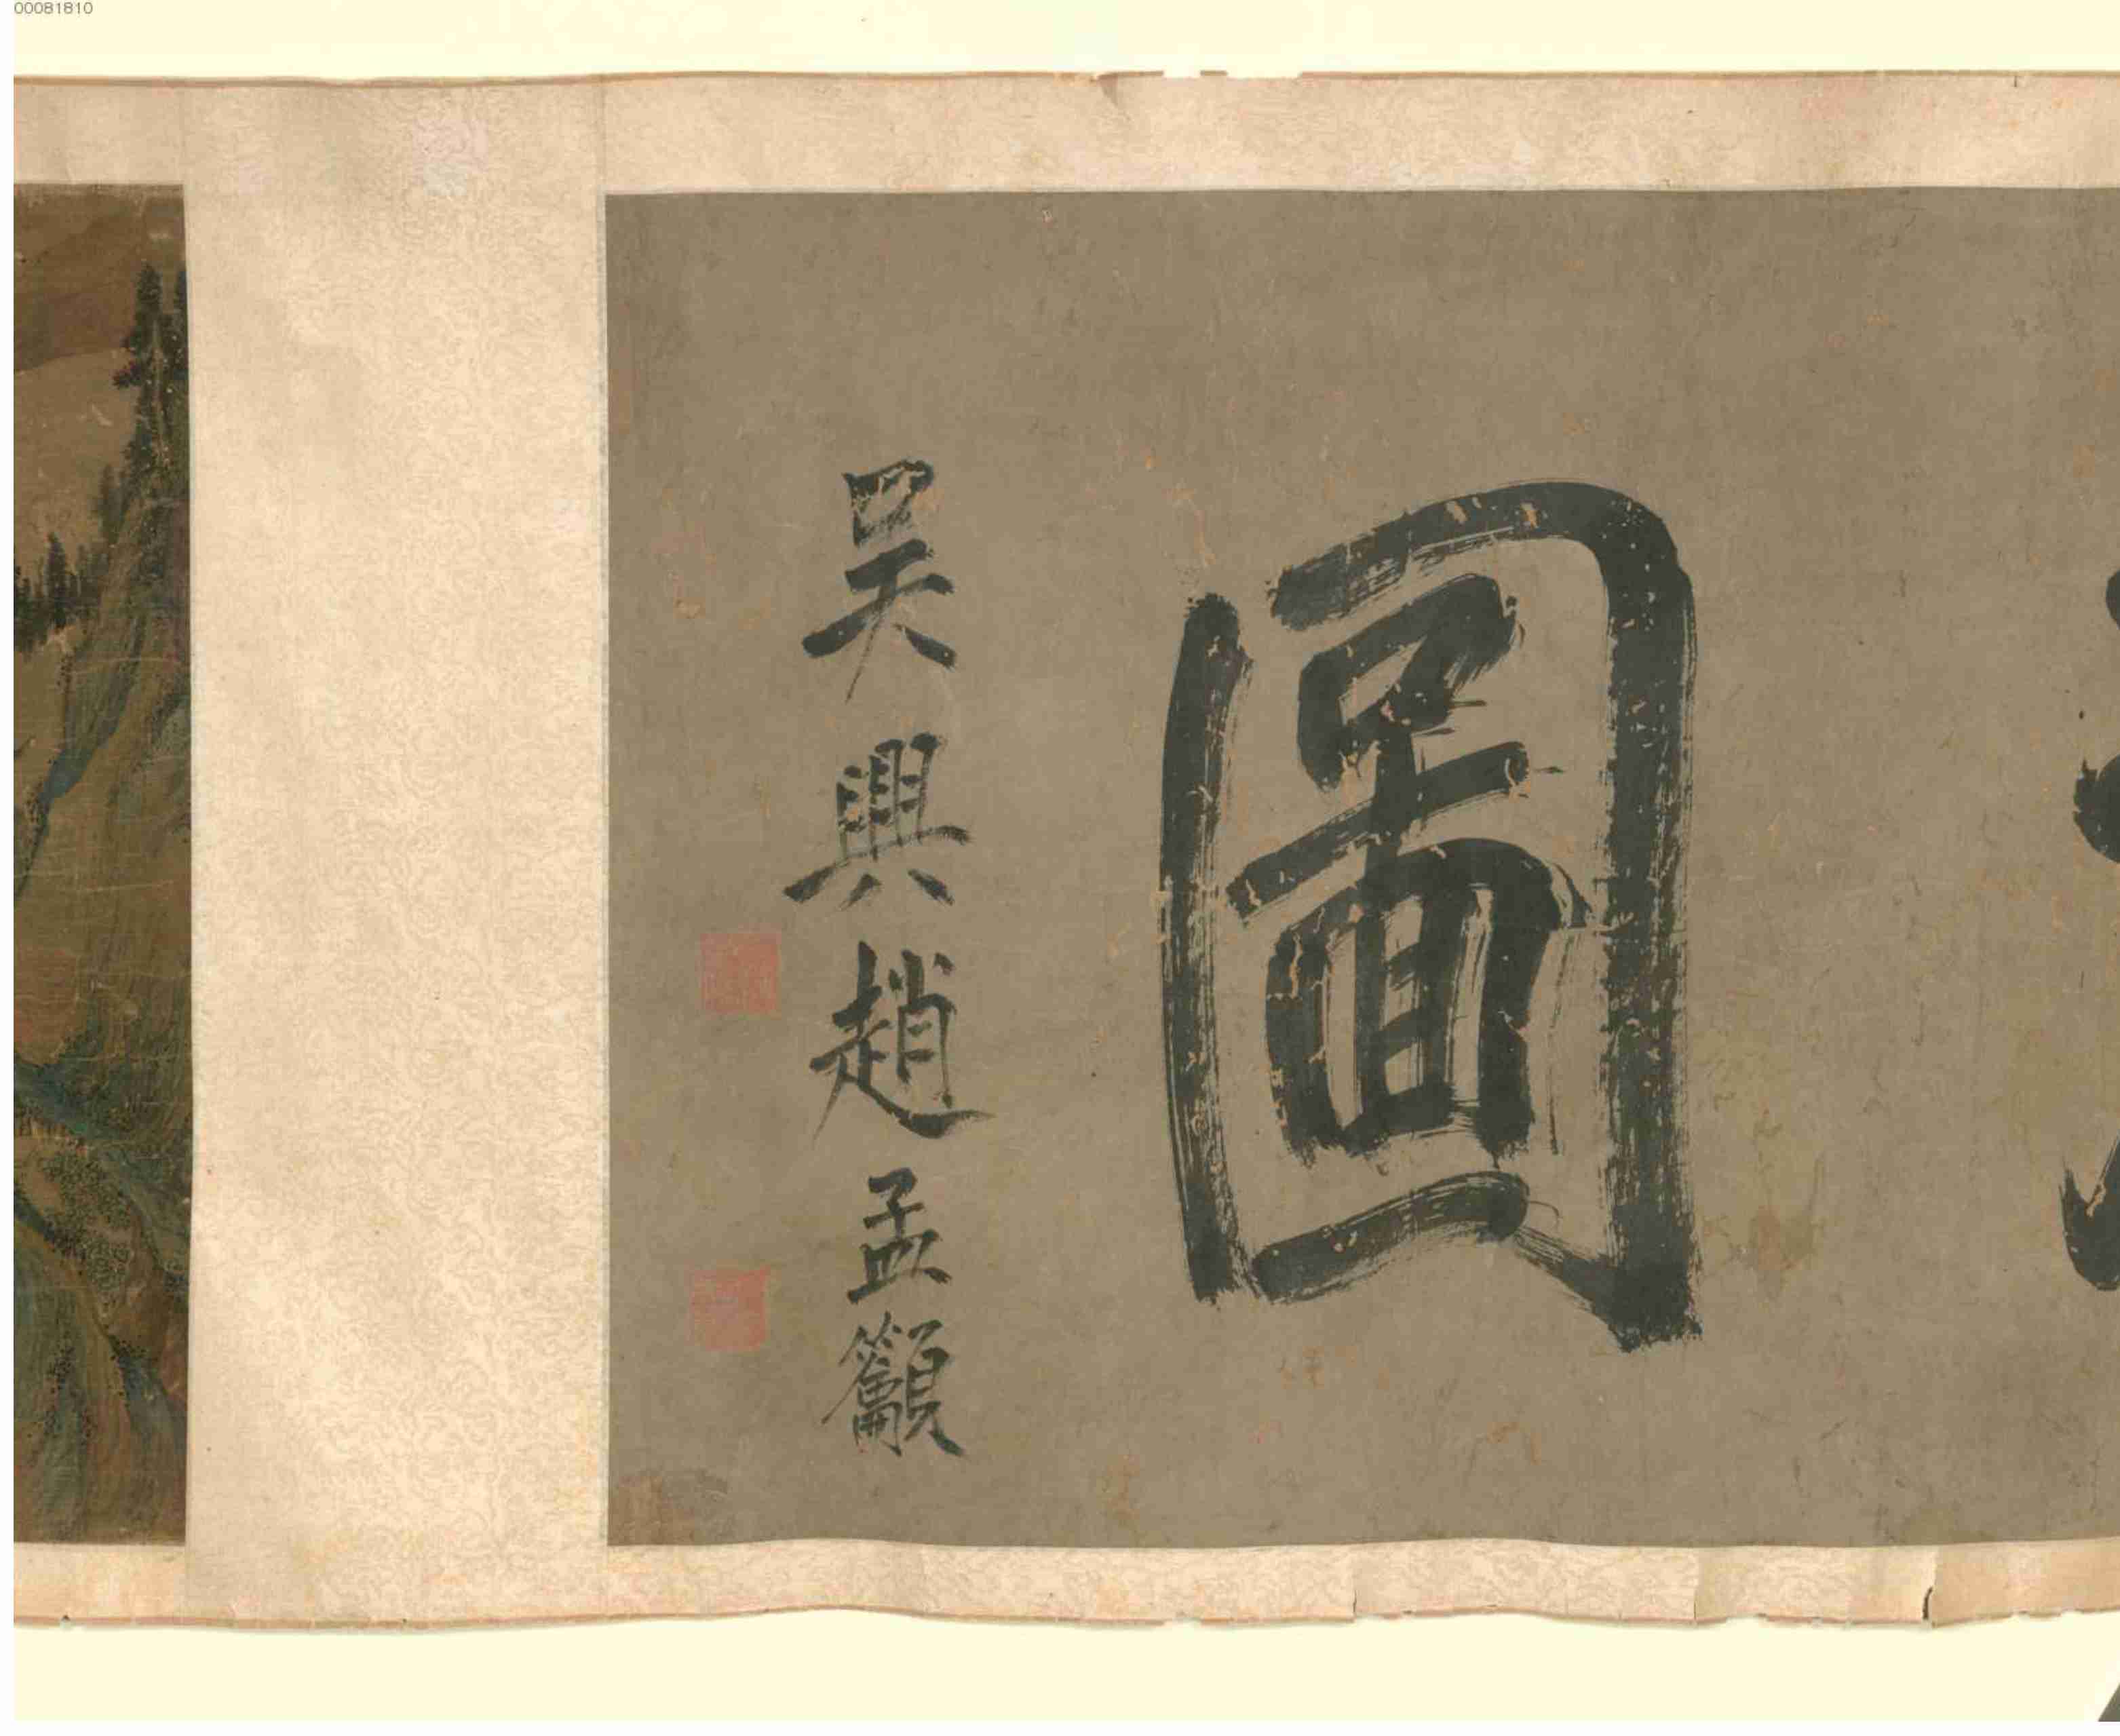 00081810
圖
吳興趙孟籲